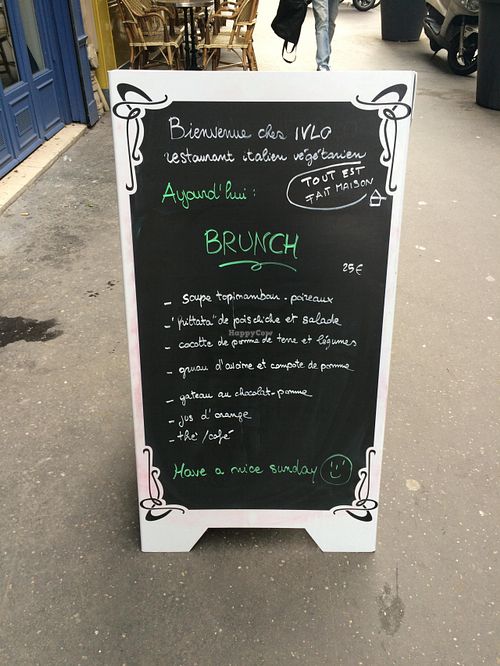 Bienvenue chez IVLO
restaurant italien végétarien
TOUT EST
FAIT MAISON
Aujourd'hui :
BRUNCH
25€
- soupe topinambour - poireaux
- "frittata" de pois chiche et salade
- cocotte de pomme de terre et légumes
- gruau d'avoine et compote de pomme
- gateau au chocolat - pomme
- jus d'orange
- thé / café
Have a nice sunday
HappyCow